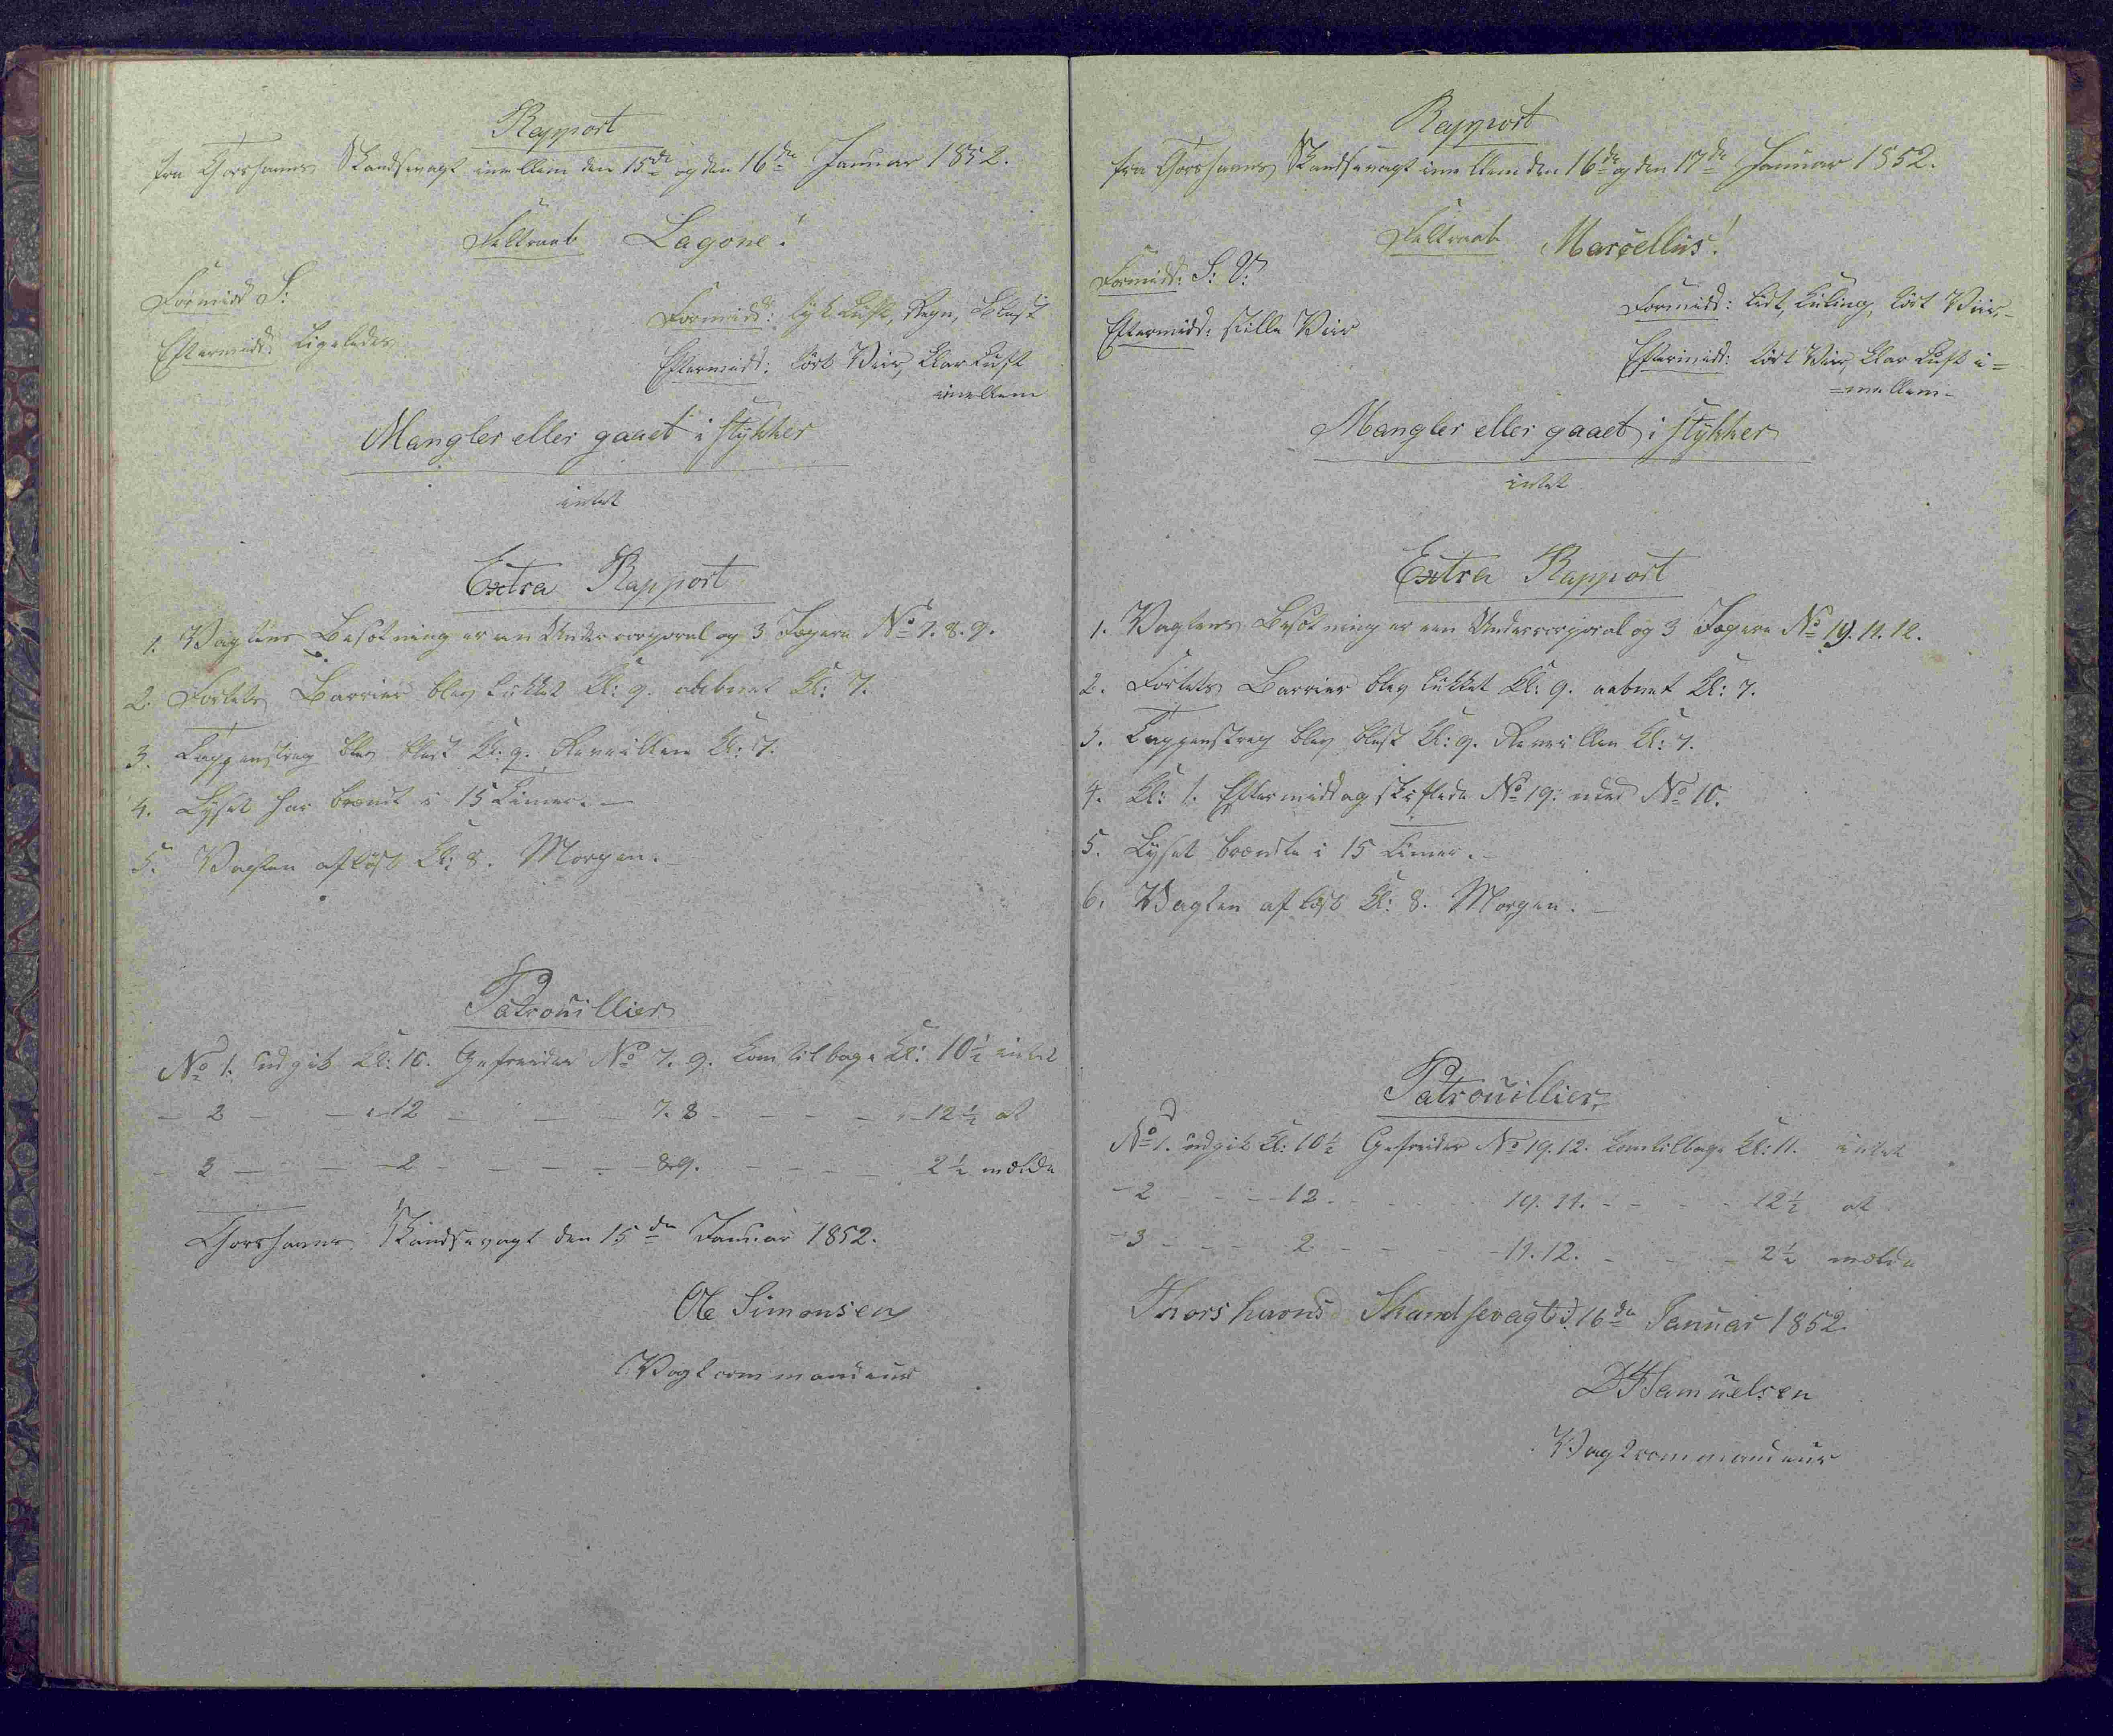 Rapport
fra Thorshavns Skandsevagt imellem den 15de og den 16de Januar 1852.
Feltraab Lagone!
Formidd S:
Formidd: tyk Luft, Regn, Blæst
Eftermidd: Ligeledes
Eftermidd: tört Veir, klar Luft
imellem
Mangler eller gaaet i stykker
intet
Extra Rapport
1. Vagtens Besætning er en Undercorporal og 3 Jægere No 7. 8. 9.
2. Fortets Barrier blev lukket Kl: 9. aabnet Kl: 7.
3. Tappenstreg blev blæst Kl: 9. Reveillen Kl: 7.
4. Lyset har brændt i 15 Timer. —
5. Vagten aflöst Kl: 8. Morgen.
Patrouillier
No 1. udgik Kl: 10. Gefreider No 7. 9. kom tilbage Kl: 10½ intet
- 2 - - - 12 - - - 7. 8 - - - - - 12½ at
- 3 - - - 2 - - - - 8. 9. - - - - 2½ melde
Thorshavns Skandsevagt den 15de Januar 1852.
Ole Simonsen
Vagtcommandeur
Rapport
fra Thorshavns Skandsevagt imellem den 16de og den 17de Januar 1852.
Feltraab Marcellus!
Formidd: S: V:
Formidd: lidt Kuling, tört Veir, -
Eftermidd: stille Veir
Eftermidd: tört Veir, klar Luft i=
=mellem -
Mangler eller gaaet i stykker
intet
Extra Rapport
1. Vagtens Besætning er een Undercorporal og 3 Jægere No 19. 11. 12.
2. Fortets Barrier blev lukket Kl: 9. aabnet Kl: 7.
3. Tappenstreg blev blæst Kl: 9. Reveillen Kl: 7.
4. Kl: 1. Eftermiddag skiftede No 19: med No 10.
5. Lyset brændte i 15 Timer. -
6. Vagten aflöst Kl: 8. Morgen. -
Patrouillier
No 1. udgik Kl: 10½ Gefreider No 19. 12. kom tilbage Kl: 11. intet
- 2 - - - 12 - - - 19. 11. - - - - 12½ at
- 3 - - - 2 - - - - 11. 12. - - - 2½ melde
Thorshavns Skandsevagt d. 16de Januar 1852.
D F Samuelsen
Vagtcommandeur